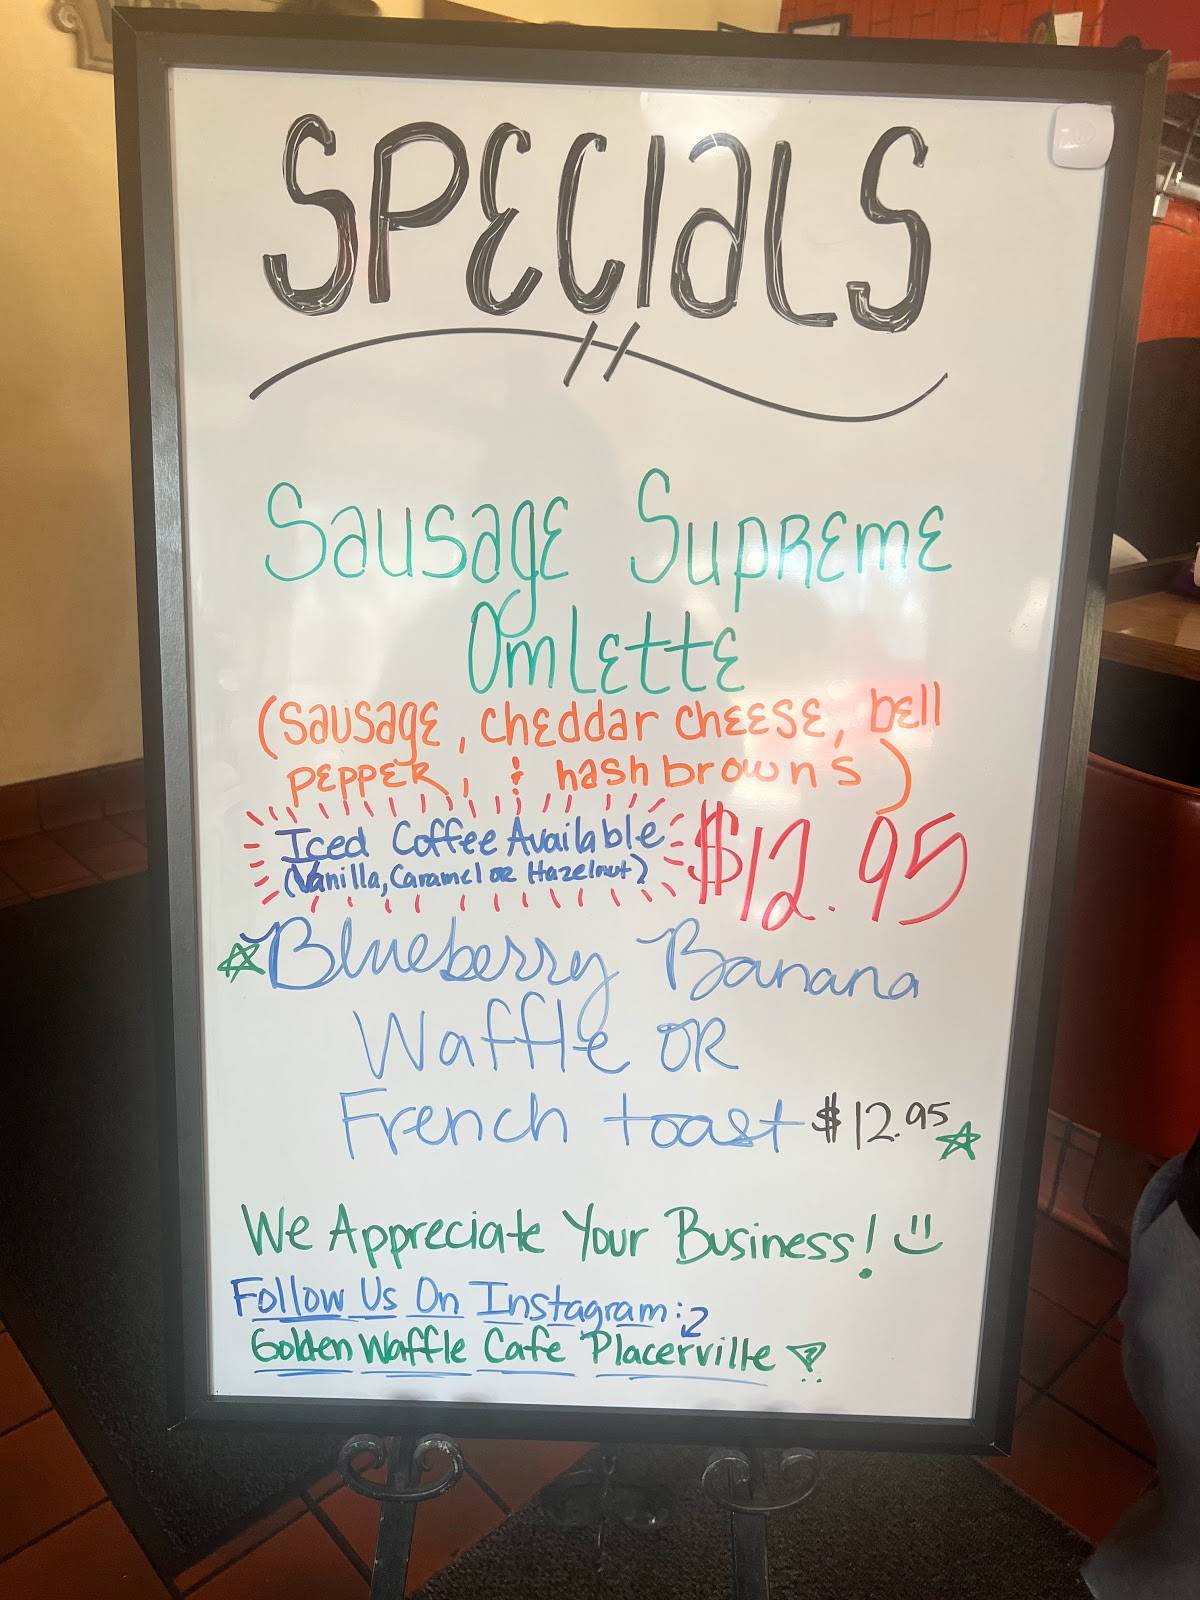 SPECIALS
Sausage Supreme
Omlette
(sausage, cheddar cheese, bell
pepper, & hashbrowns)
Iced Coffee Available
(Vanilla, Caramel or Hazelnut)
$12.95
Blueberry Banana
Waffle OR
French toast $12.95
We Appreciate Your Business!
Follow Us On Instagram:
Golden Waffle Cafe Placerville